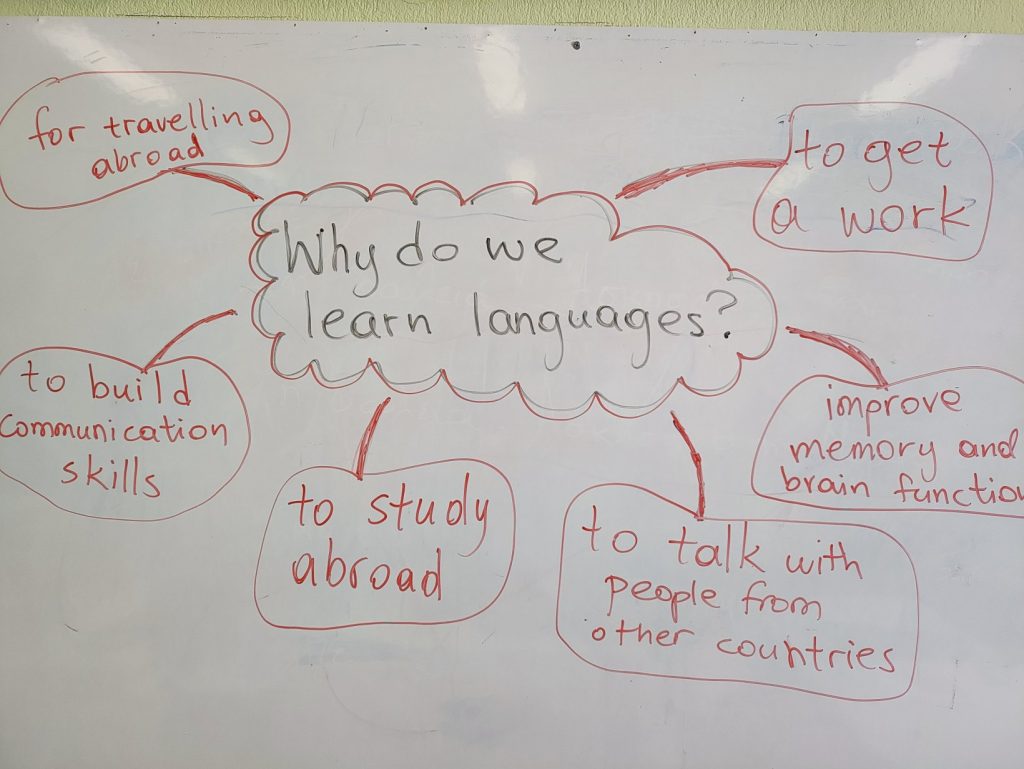 Why do we
learn languages?
for travelling
abroad
to get
a work
to build
communication
skills
to study
abroad
to talk with
people from
other countries
improve
memory and
brain function